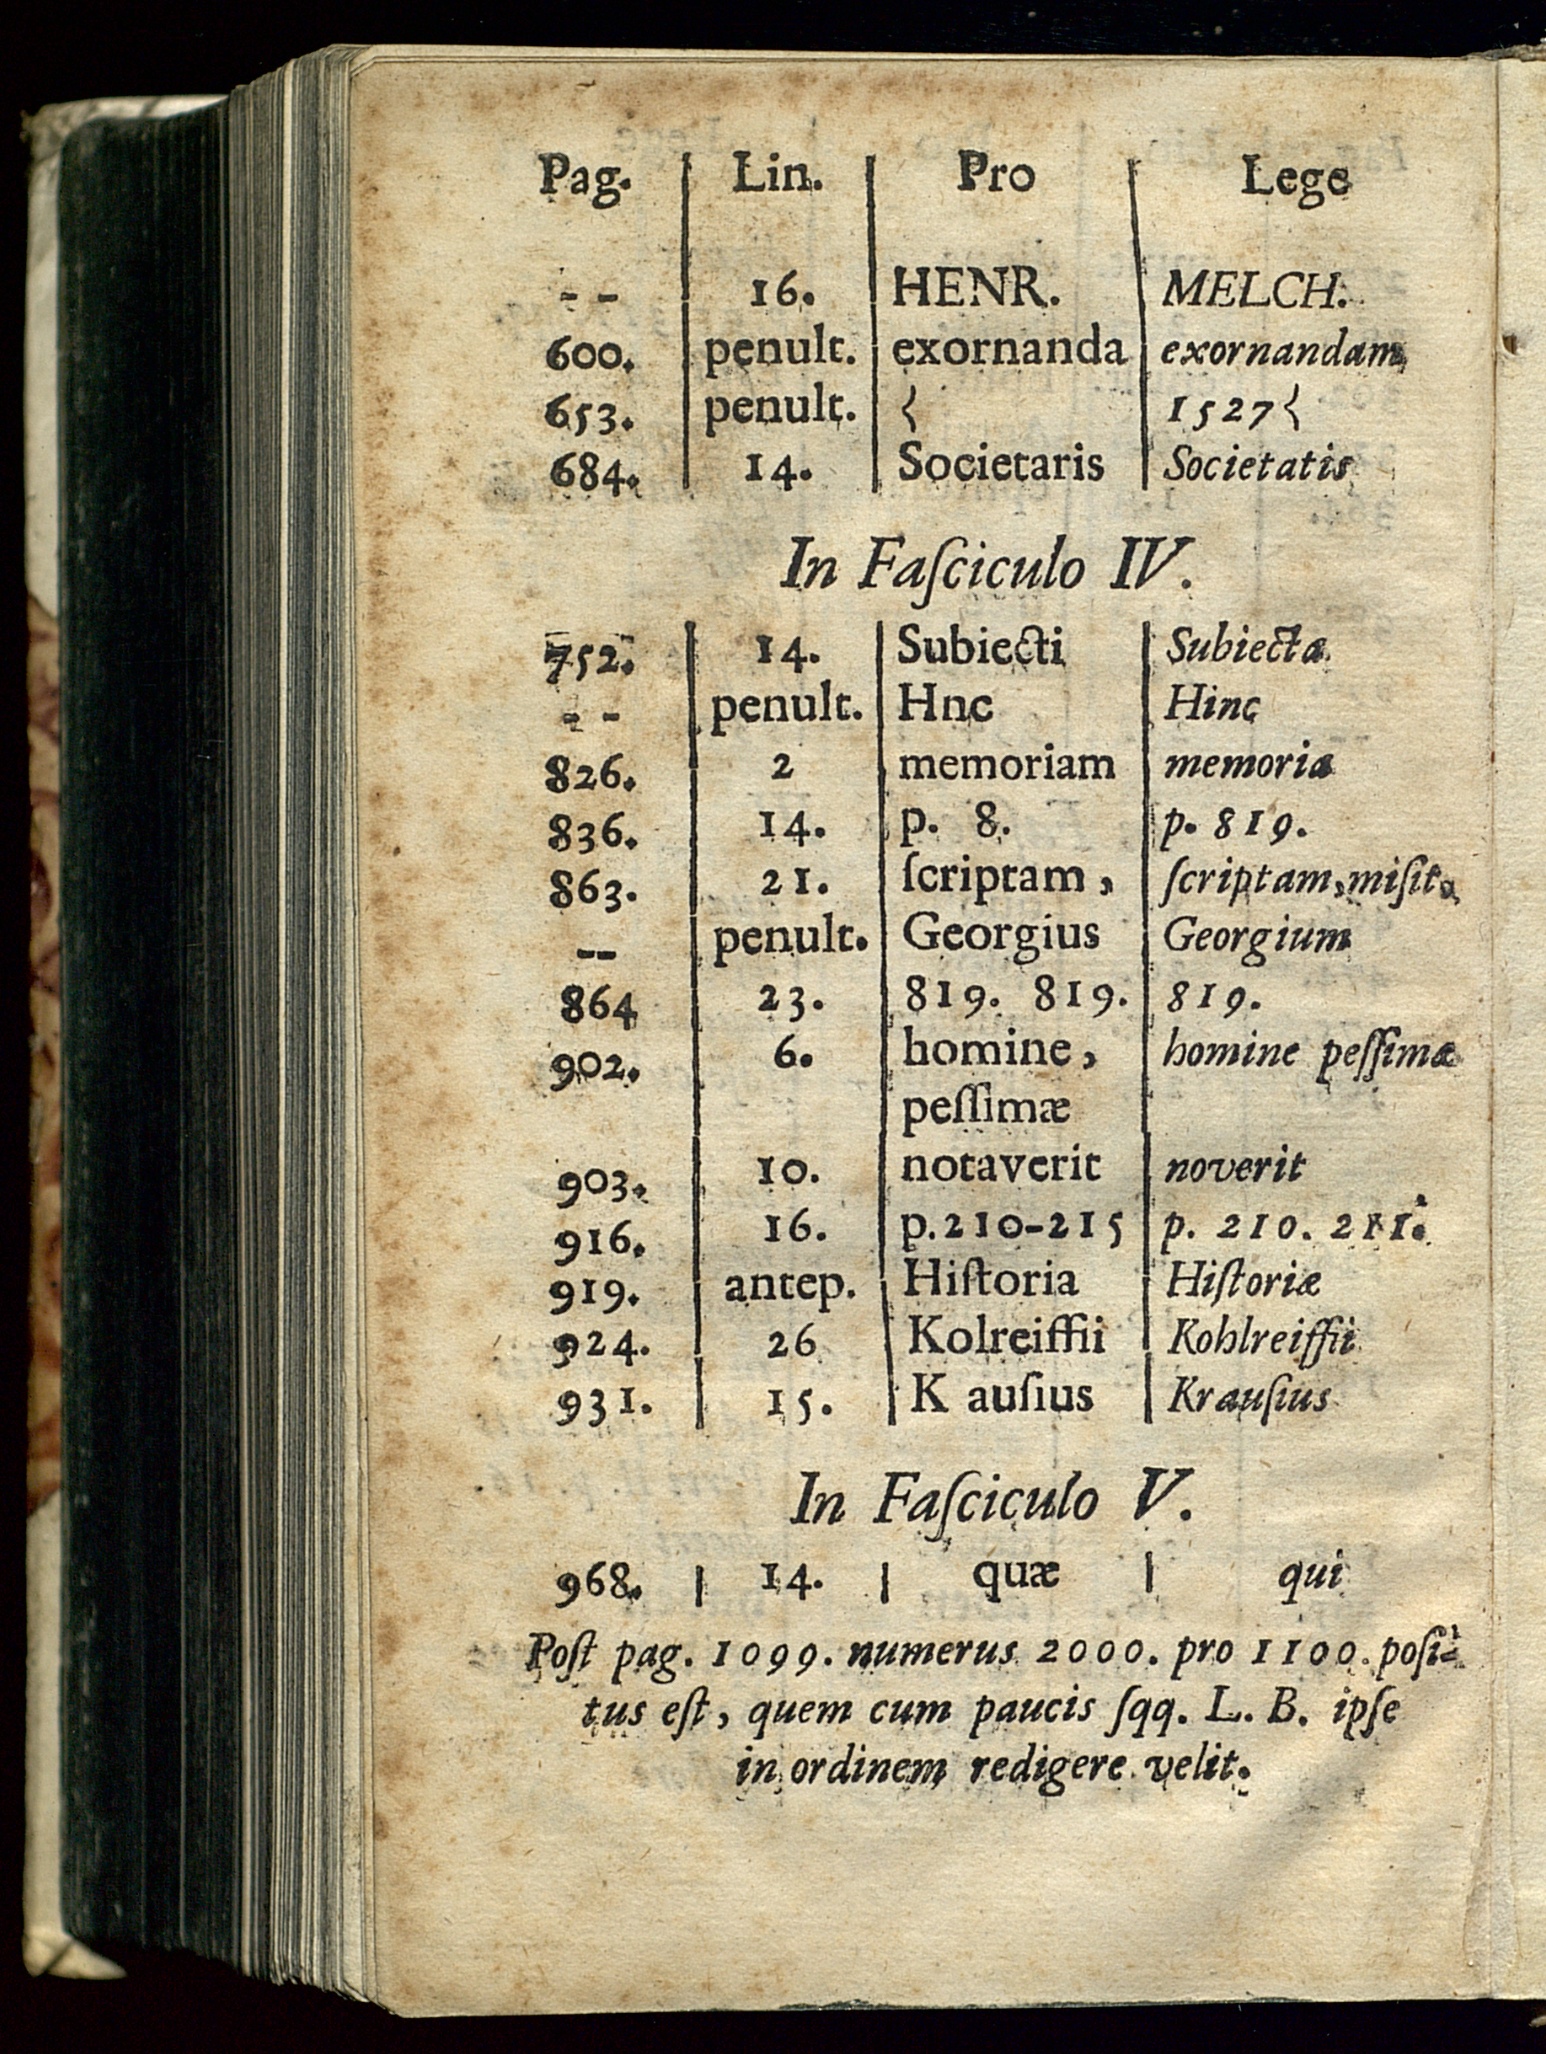 Pag. | Lin. | Pro | Lege
- - | 16. | HENR. | MELCH.
600. | penult. | exornanda | exornandam
653. | penult. | { | 1527{
684. | 14. | Societaris | Societatis
In Faſciculo IV.
752. | 14. | Subiecti | Subiecta
- - | penult. | Hnc | Hinc
826. | 2 | memoriam | memoria
836. | 14. | p. 8. | p. 819.
863. | 21. | ſcriptam, | ſcriptam, miſit,
-- | penult. | Georgius | Georgium
864 | 23. | 819. 819. | 819.
902. | 6. | homine, | homine peſſimæ
peſſimæ
903. | 10. | notaverit | noverit
916. | 16. | p. 210-215 | p. 210. 211.
919. | antep. | Hiſtoria | Hiſtoriæ
924. | 26 | Kolreiffii | Kohlreiffii
931. | 15. | K auſius | Krauſius
In Faſciculo V.
968. | 14. | quæ | qui
Poſt pag. 1099. numerus 2000. pro 1100. poſi-
tus eſt, quem cum paucis ſqq. L. B. ipſe
in ordinem redigere velit.